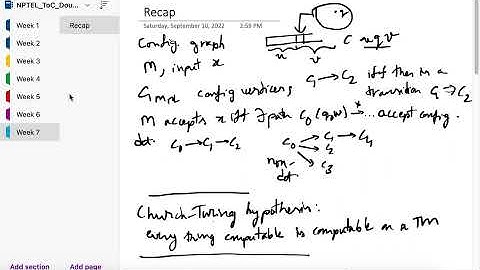 NPTEL_ToC_Dou...
Week 1
Week 2
Week 3
Week 4
Week 5
Week 6
Week 7
Add section
Recap
Add page
Recap
Saturday, September 10, 2022 2:59 PM
Config. graph
M, input x
q
u v
C uqv
G M,x config vertices, C1 → C2 iff there is a
transition C1 → C2
M accepts x iff ∃ path C0 (q0x) →* ... accept config.
det. C0 → C1 → C2
C0 → C1 → C4
C2
C3
non-
det
Church-Turing hypothesis:
every thing computable is computable on a TM